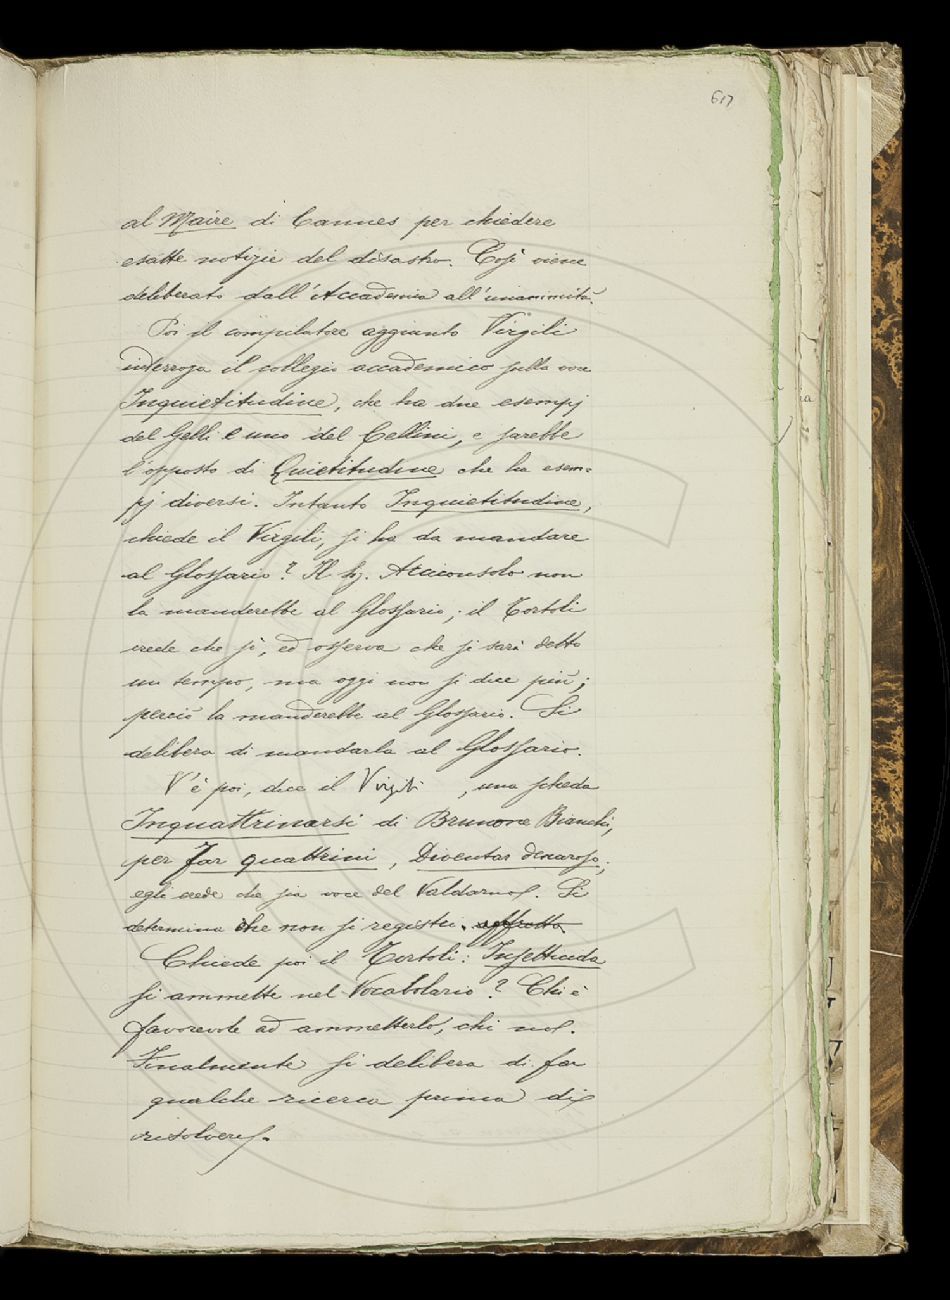 617
al Maire di Cannes per chiedere
esatte notizie del disastro. Così viene
deliberato dall'Accademia all'unanimità.
Poi il compilatore aggiunto Virgili
interroga il collegio accademico sulla voce
Inquietitudine, che ha due esempj
del Gelli e uno del Cellini, e sarebbe
l'opposto di Quietitudine che ha esem-
pj diversi. Intanto Inquietitudine,
chiede il Virgili, si ha da mandare
al Glossario? Il Sig. Arciconsolo non
la manderebbe al Glossario; il Tortoli
crede che sì, ed osserva che si sarà detto
un tempo, ma oggi non si dice più;
perciò la manderebbe al Glossario. Si
delibera di mandarla al Glossario.
V'è poi, dice il Virgili, una scheda
Inquattrinarsi di Brunone Bianchi,
per Far quattrini, Diventar denaroso;
egli crede che sia voce del Valdarno. Si
determina che non si registri.
Chiede poi il Tortoli: Insetticida
si ammette nel Vocabolario? Chi è
favorevole ad ammetterlo, chi no.
Finalmente si delibera di far
qualche ricerca prima di
risolvere.